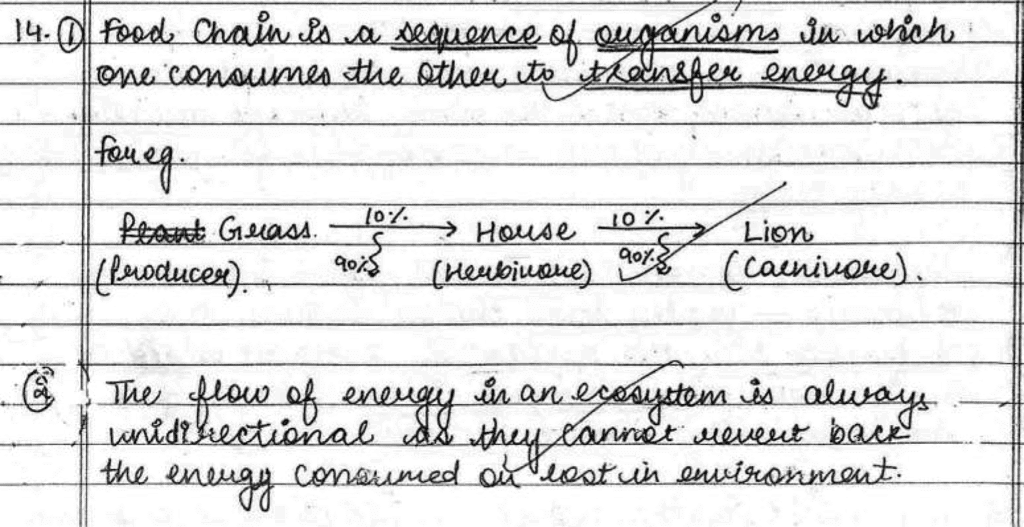 14. ① Food Chain is a sequence of organisms in which
one consumes the other to transfer energy
for eg.
Plant Grass. 10% → House 10% → Lion
90% 90%
(Producer). (Herbivore) (Carnivore)
② The flow of energy in an ecosystem is always
unidirectional as they cannot revert back
the energy consumed or lost in environment.